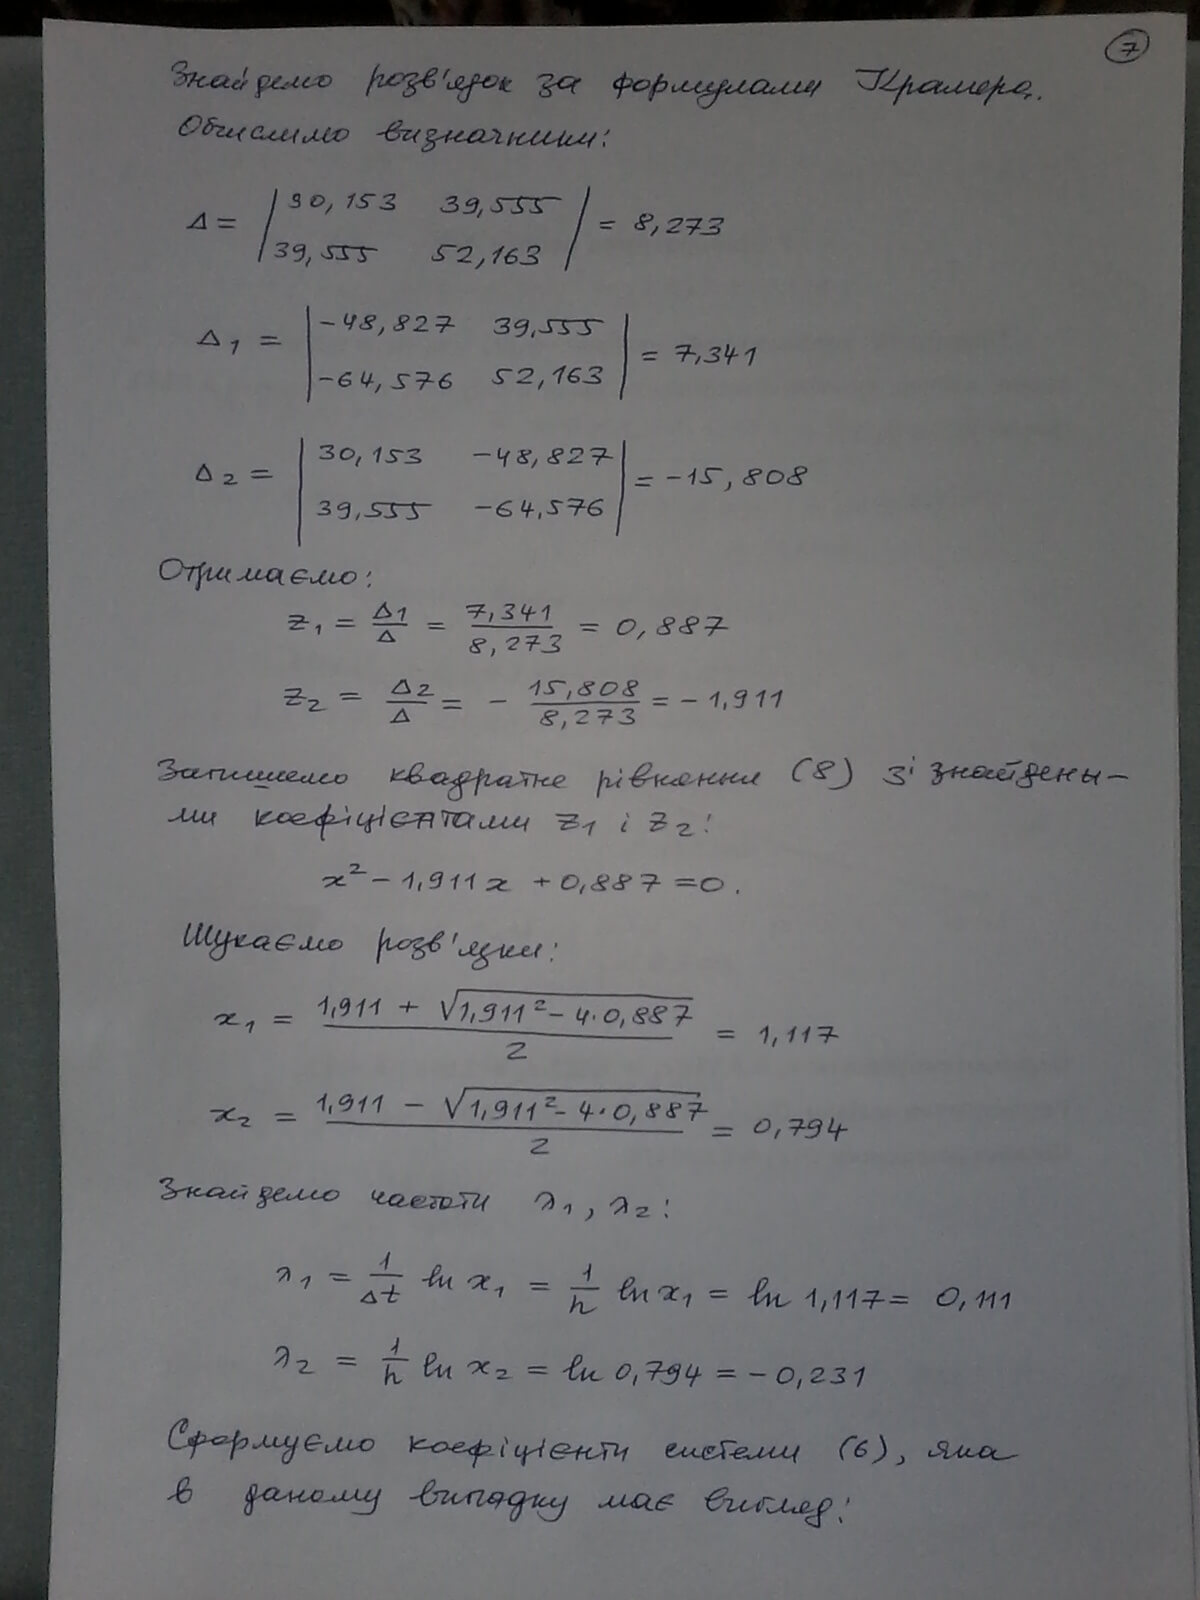 7
Знайдемо розв'язок за формулами Крамера.
Обчислимо визначники:
Δ = | 30,153 39,555 | = 8,273
39,555 52,163
Δ1 = | -48,827 39,555 | = 7,341
-64,576 52,163
Δ2 = | 30,153 -48,827 | = -15,808
39,555 -64,576
Отримаємо:
z1 = Δ1/Δ = 7,341/8,273 = 0,887
z2 = Δ2/Δ = - 15,808/8,273 = -1,911
Запишемо квадратне рівняння (8) зі знайдены-
ми коефіцієнтами z1 і z2:
x² - 1,911x + 0,887 = 0.
Шукаємо розв'язки:
x1 = (1,911 + √(1,911² - 4·0,887))/2 = 1,117
x2 = (1,911 - √(1,911² - 4·0,887))/2 = 0,794
Знайдемо частоти λ1, λ2:
λ1 = 1/Δt ln x1 = 1/h ln x1 = ln 1,117 = 0,111
λ2 = 1/h ln x2 = ln 0,794 = -0,231
Сформуємо коефіцієнти системи (6), яка
в даному випадку має вигляд: